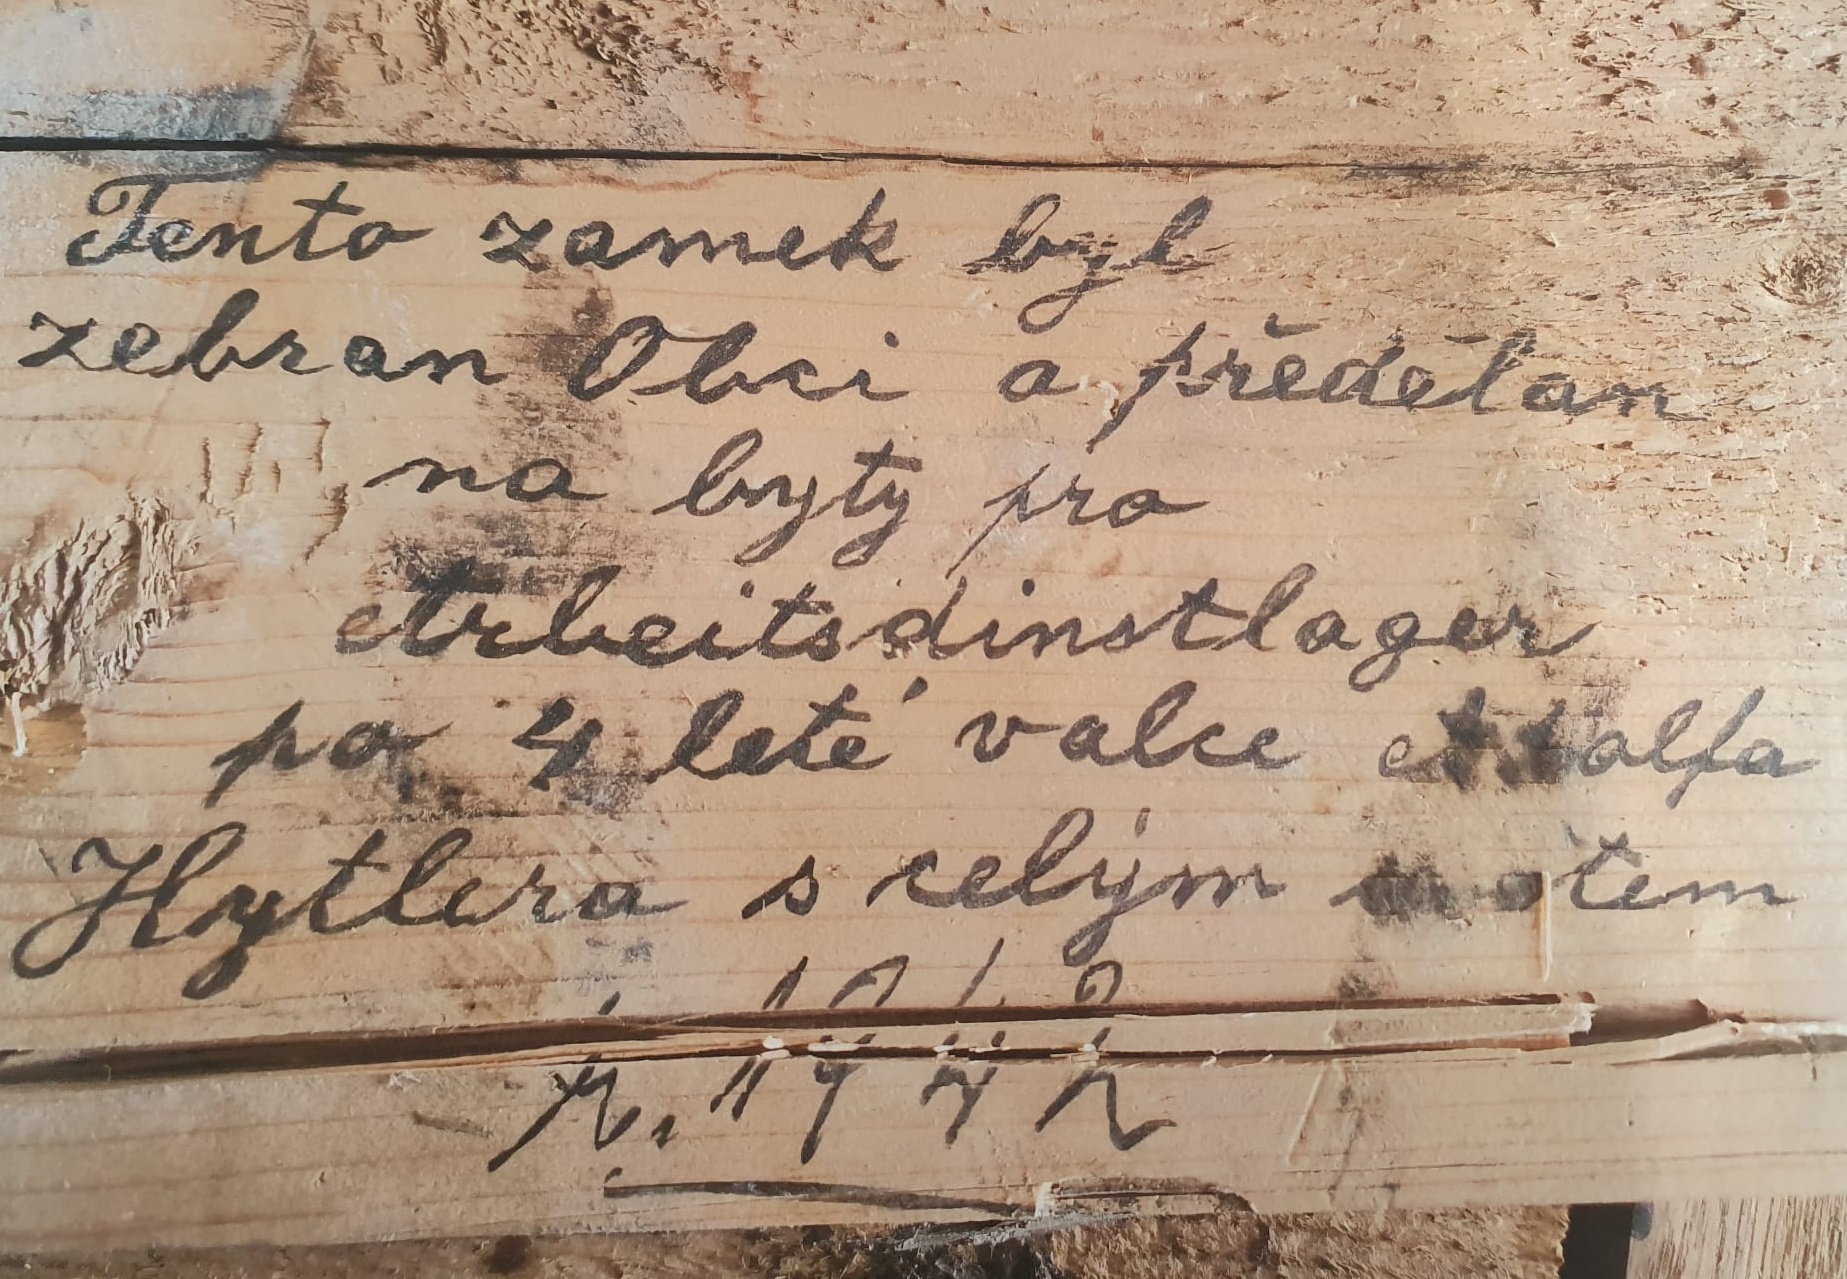 Tento zamek byl
zebran Obci a předělan
na byty pro
Arbeitsdinstlager
po 4 leté valce Adolfa
Hytlera s celým světem
r. 1942